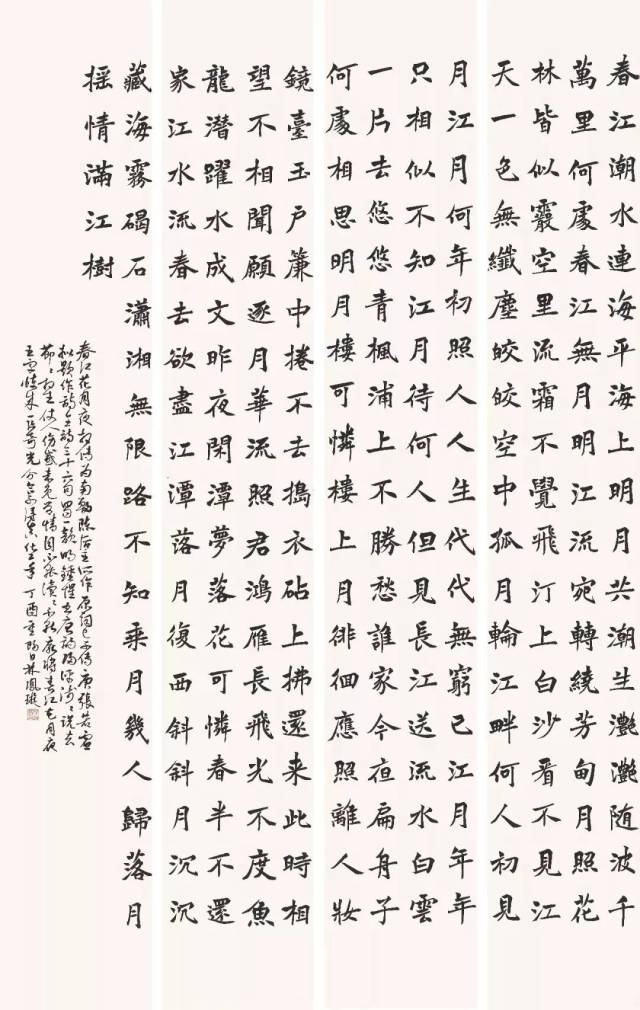 春江潮水連海平海上明月共潮生灩灩随波千
萬里何處春江無月明江流宛轉繞芳甸月照花
林皆似霰空里流霜不覺飛汀上白沙看不見江
天一色無纖塵皎皎空中孤月輪江畔何人初見
月江月何年初照人人生代代無窮已江月年年
只相似不知江月待何人但見長江送流水白雲
一片去悠悠青楓浦上不勝愁誰家今夜扁舟子
何處相思明月樓可憐樓上月徘徊應照離人妝
鏡臺玉戶簾中捲不去搗衣砧上拂還来此時相
望不相聞願逐月華流照君鴻雁長飛光不度魚
龍潛躍水成文昨夜閑潭夢落花可憐春半不還
家江水流春去欲盡江潭落月復西斜斜月沉沉
藏海霧碣石瀟湘無限路不知乘月幾人歸落月
搖情滿江樹
春江花月夜相傳為南朝陳後主所作原詞已不傳唐張若虛
擬題作詩全詩三十六句
春江花月夜
丁酉重陽日林鳳璇